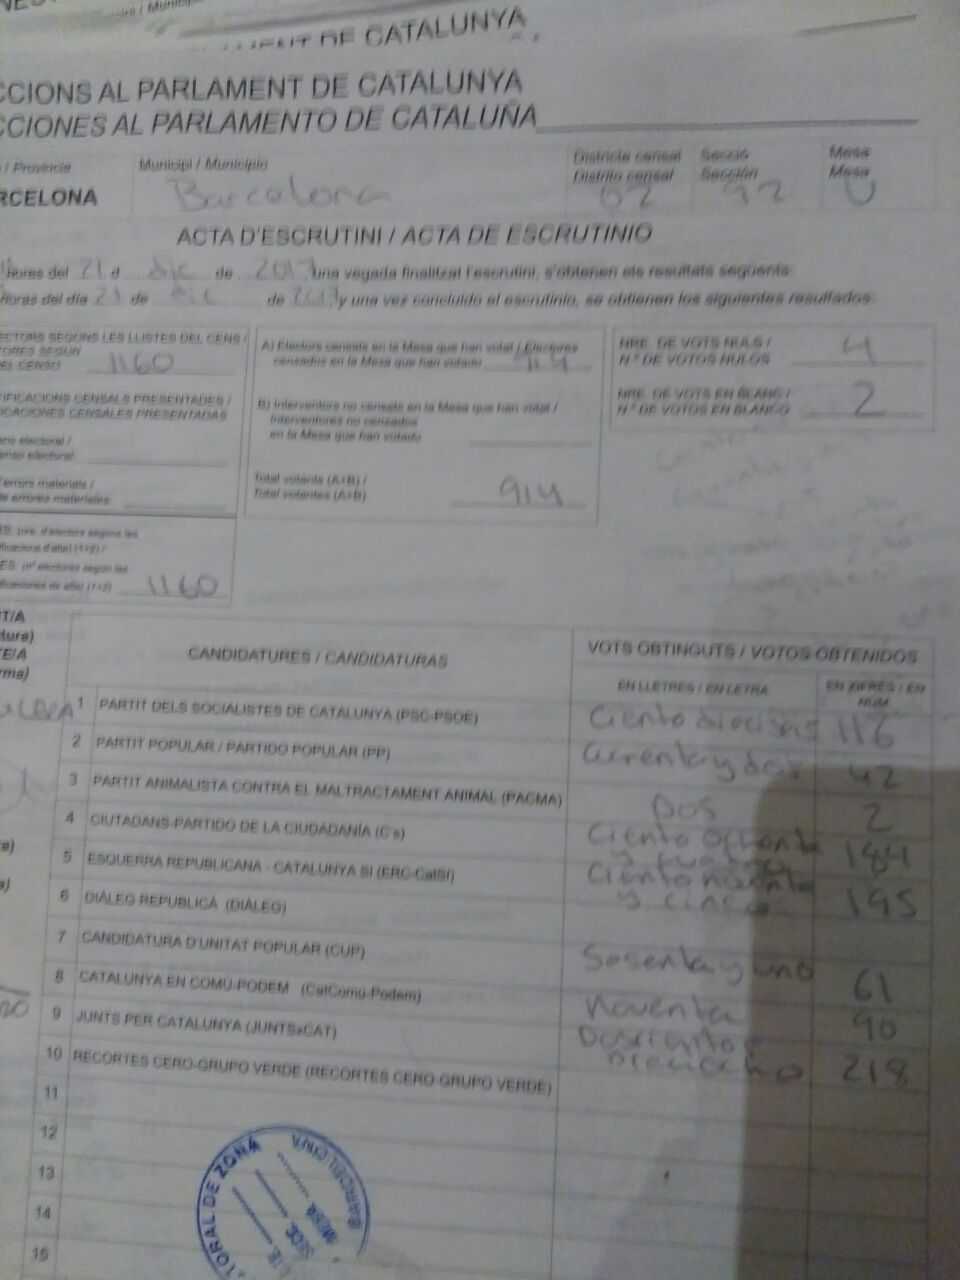 MENT DE CATALUNYA
CCIONS AL PARLAMENT DE CATALUNYA
CCIONES AL PARLAMENTO DE CATALUÑA
/ Provincia
Municipi / Municipio
Districte censal
Distrito censal
Secció
Sección
Mesa
Mesa
RCELONA
Barcelona
02
92
U
ACTA D'ESCRUTINI / ACTA DE ESCRUTINIO
hores del 21 d dic de 2017 una vegada finalitzat l'escrutini, s'obtenen els resultats següents:
horas del día 21 de dic de 2017 y una vez concluido el escrutinio, se obtienen los siguientes resultados:
ECTORS SEGONS LES LLISTES DEL CENS /
TORES SEGÚN
DEL CENSO 1160
TIFICACIONS CENSALS PRESENTADES /
ICACIONES CENSALES PRESENTADAS
ens electoral /
enso electoral:
errors materials /
e errores materiales:
RS: (nre. d'electors segons les
ificacions d'alta) (1+2) /
ES: (nº electores según las
ificaciones de alta) (1+2) 1160
A) Electors censats en la Mesa que han votat / Electores
censados en la Mesa que han votado 914
B) Interventors no censats en la Mesa que han votat /
Interventores no censados
en la Mesa que han votado
Total votants (A+B) /
Total votantes (A+B) 914
NRE. DE VOTS NULS /
N.º DE VOTOS NULOS 4
NRE. DE VOTS EN BLANC /
N.º DE VOTOS EN BLANCO 2
NT/A
atura)
TE/A
rma)
CANDIDATURES / CANDIDATURAS
VOTS OBTINGUTS / VOTOS OBTENIDOS
EN LLETRES / EN LETRA
EN XIFRES / EN
NUM
1 PARTIT DELS SOCIALISTES DE CATALUNYA (PSC-PSOE) Ciento dieciseis 116
2 PARTIT POPULAR / PARTIDO POPULAR (PP) cuarenta y dos 42
3 PARTIT ANIMALISTA CONTRA EL MALTRACTAMENT ANIMAL (PACMA) Dos 2
4 CIUTADANS-PARTIDO DE LA CIUDADANÍA (C's) Ciento ochenta y cuatro 184
5 ESQUERRA REPUBLICANA - CATALUNYA SÍ (ERC-CatSí) Ciento noventa y cinco 195
6 DIÀLEG REPUBLICÀ (DIÀLEG)
7 CANDIDATURA D'UNITAT POPULAR (CUP) Sesenta y uno 61
8 CATALUNYA EN COMÚ-PODEM (CatComú-Podem) noventa 90
9 JUNTS PER CATALUNYA (JUNTSxCAT) Doscientos Dieciocho 218
10 RECORTES CERO-GRUPO VERDE (RECORTES CERO-GRUPO VERDE)
11
12
13
14
15
TORAL DE ZONA
BARCELONA
SECC.
MESA